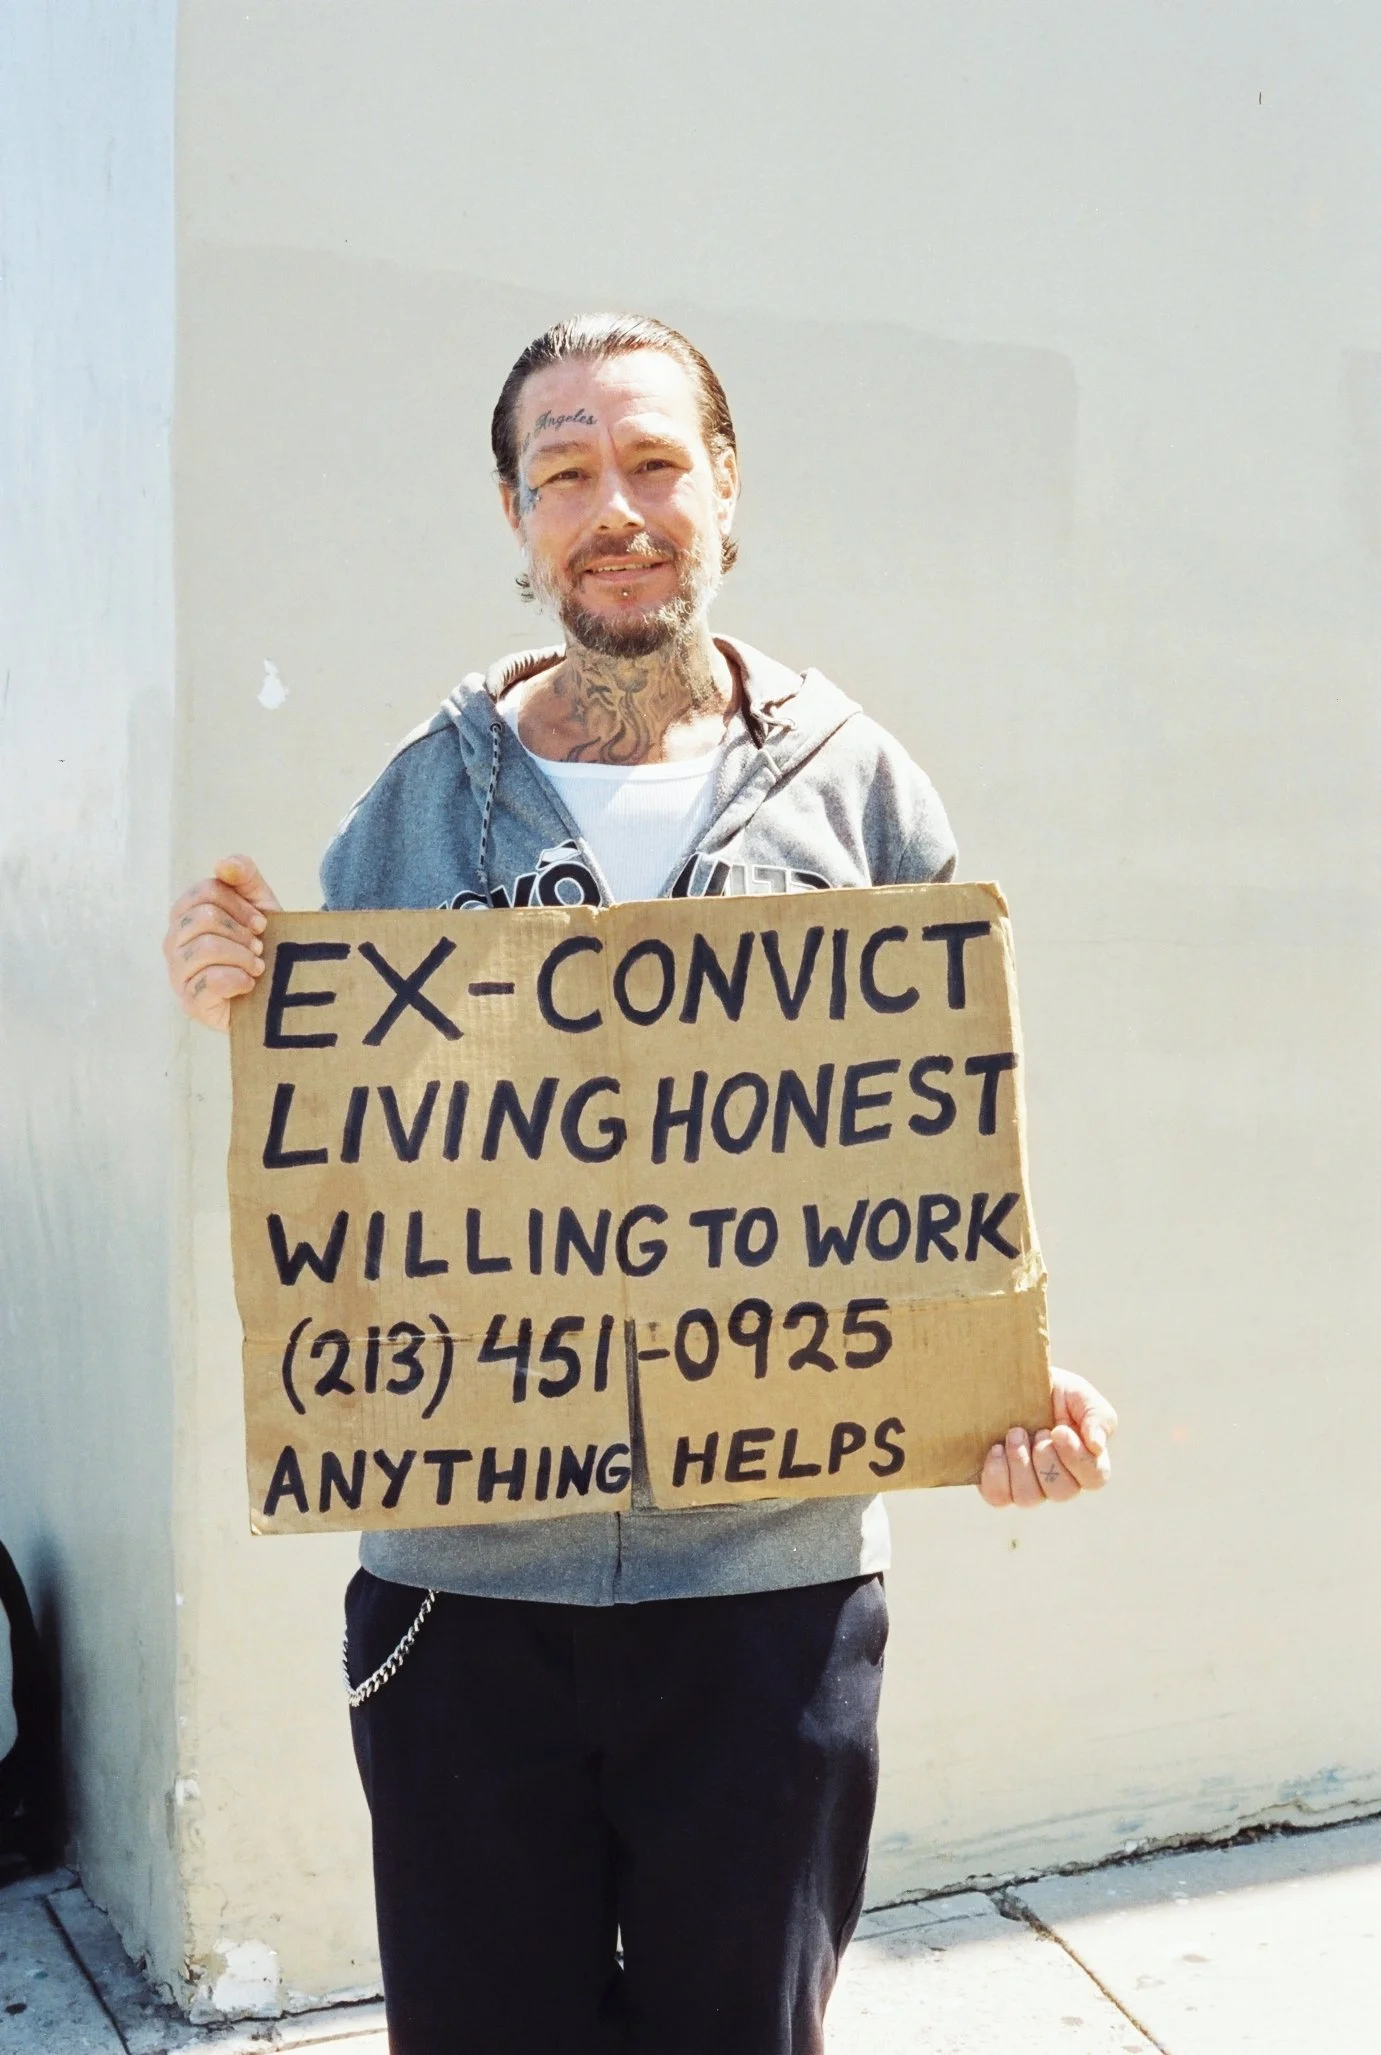 Angeles
EX-CONVICT
LIVING HONEST
WILLING TO WORK
(213) 451-0925
ANYTHING HELPS